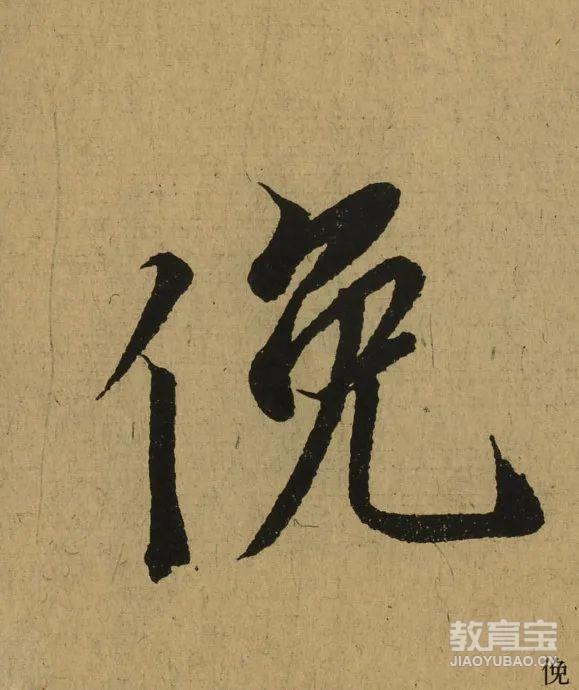 俛
教育宝
JIAOYUBAO.CN
俛